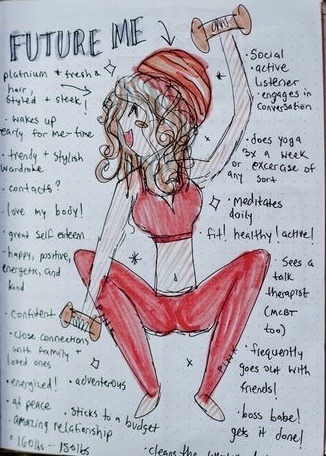 FUTURE ME
platnium + fresh
hair,
styled + sleak!
• wakes up
early for me-time
• trendy + stylish
wardrobe
• contacts?
• love my body!
• great self esteem
• happy, positive,
energetic, and
kind
• confident
• close connections
with family +
loved ones
• energized! • adventerous
• at peace • sticks to a budget
• amazing relationship
• Social
• active
listener
• engages in
conversation
• does yoga
3x a week
or excercise of
any sort
• meditates
daily
fit! healthy! active!
• Sees a
talk
therapist
(MCBT
too)
• frequently
goes out with
friends!
• boss babe!
gets it done!
• cleans the
PINK